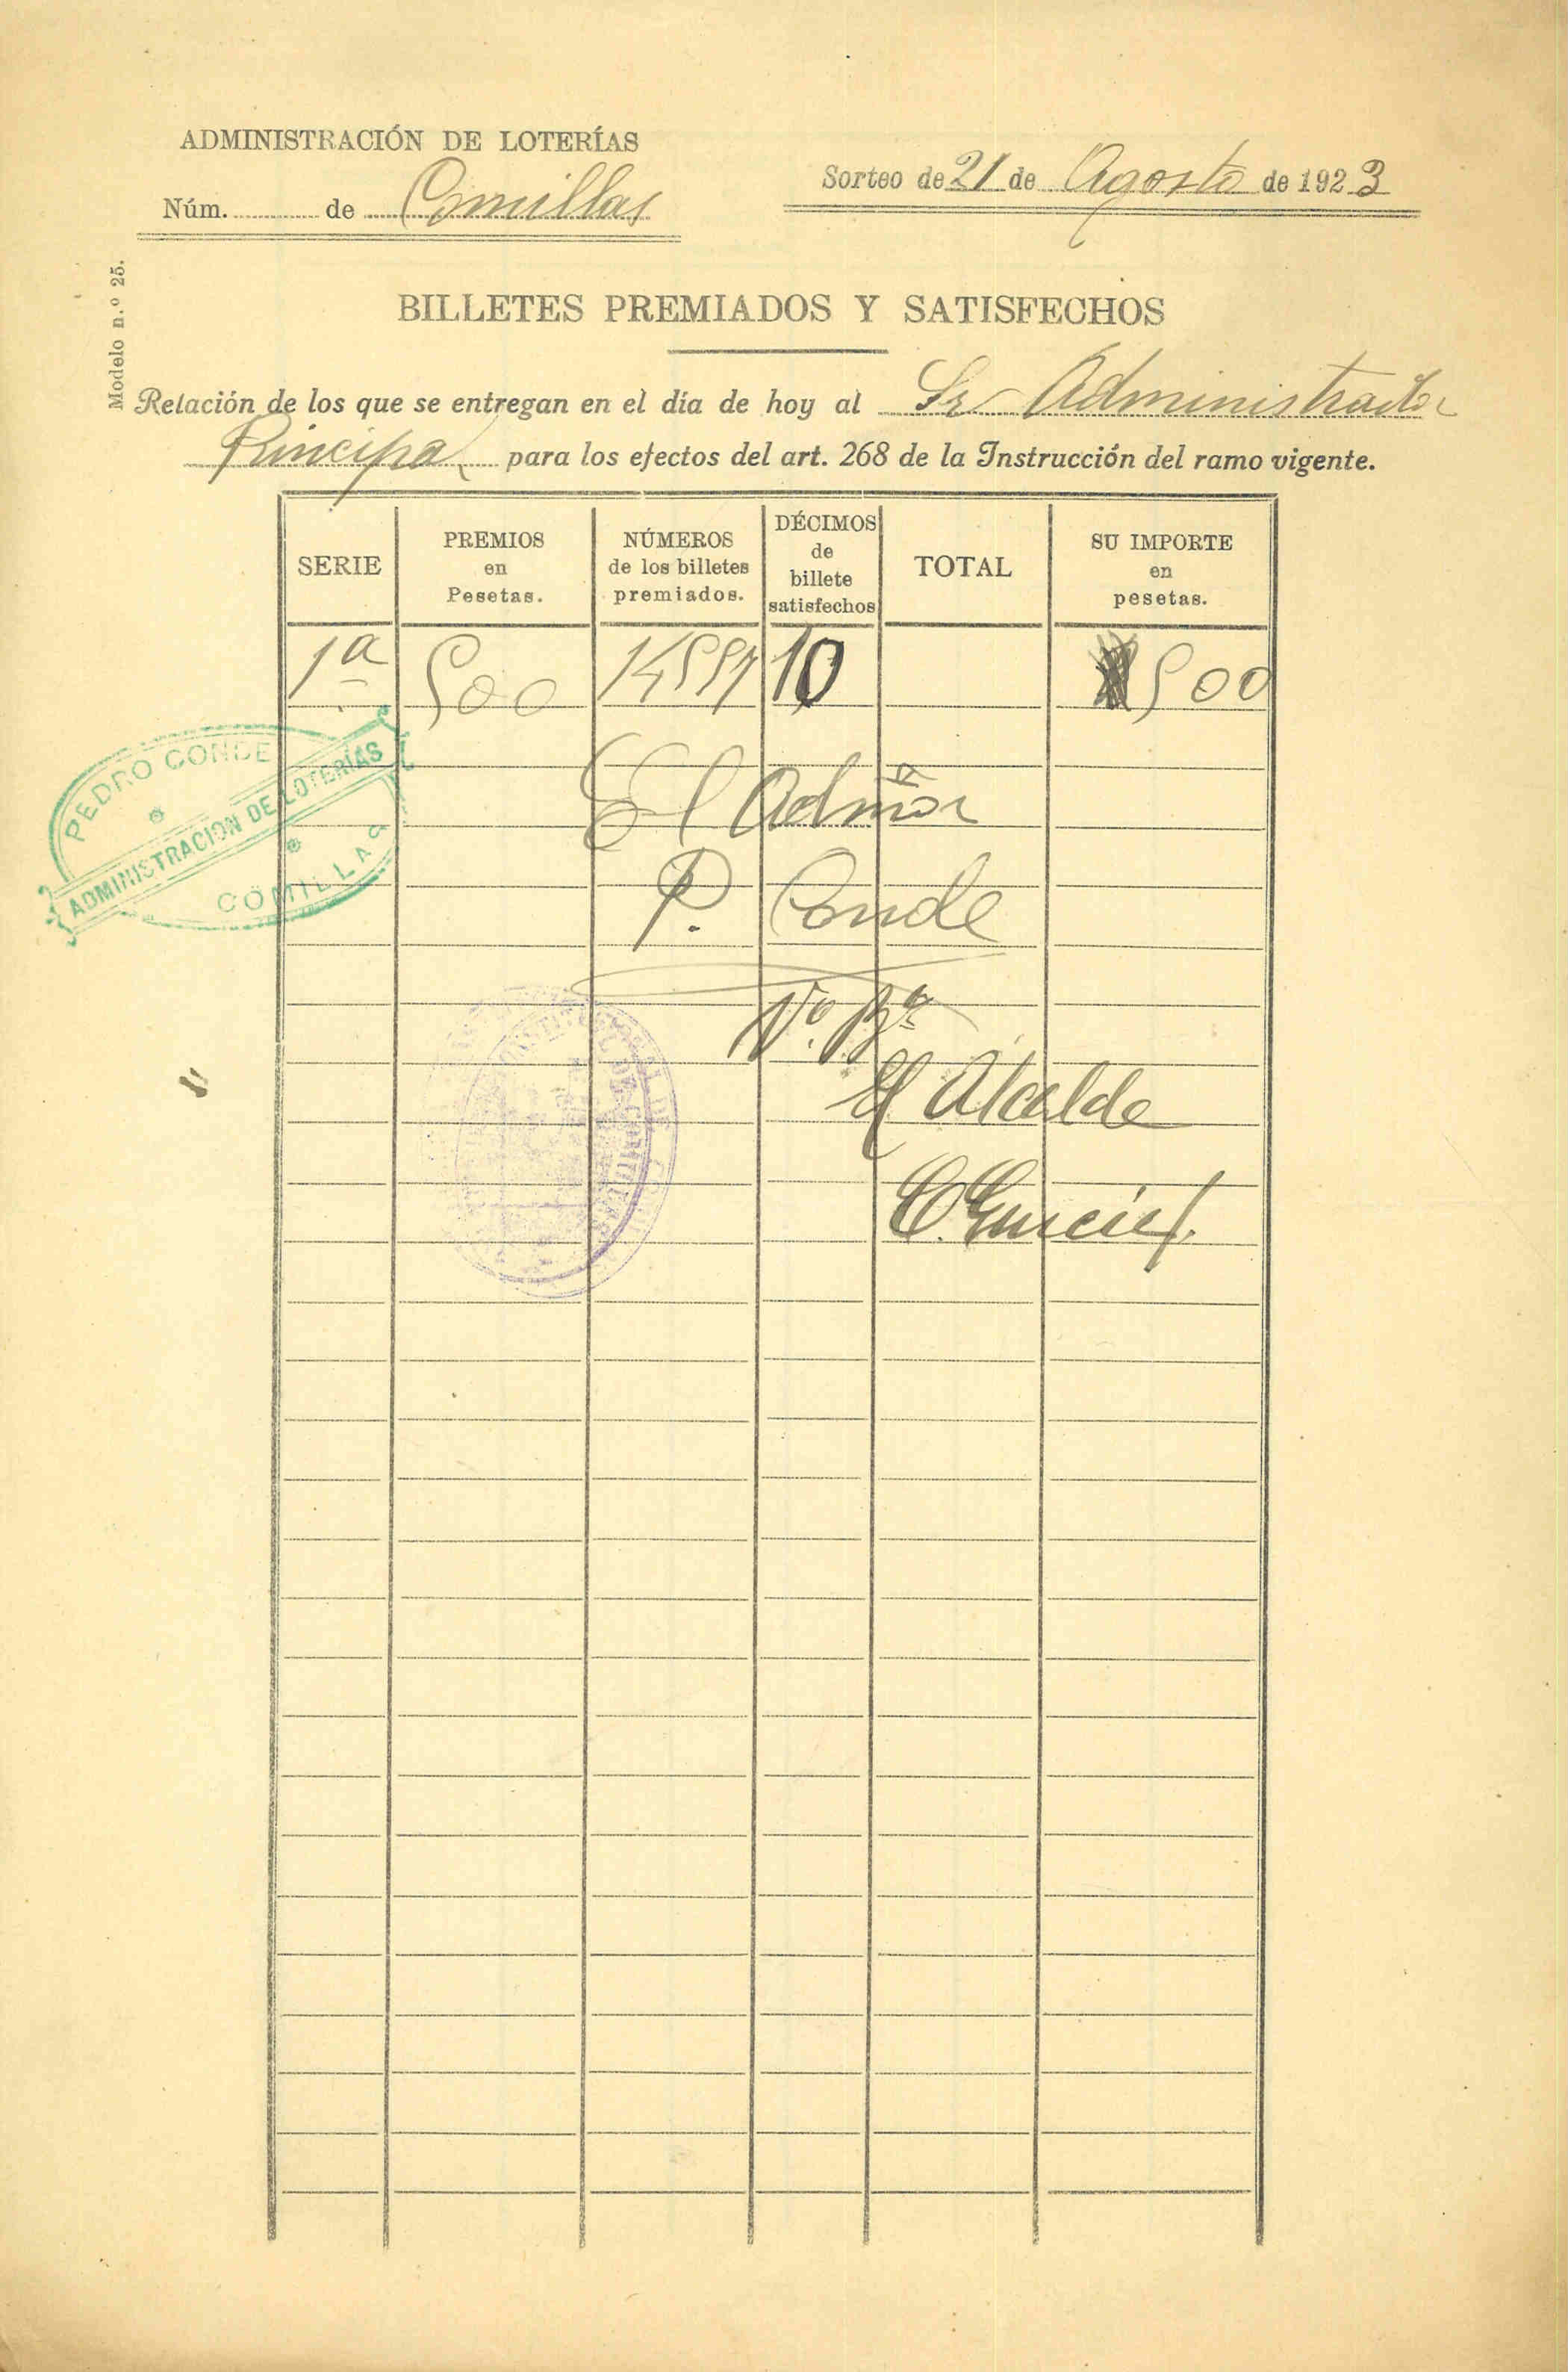 ADMINISTRACIÓN DE LOTERÍAS
Núm. de Comillas
Sorteo de 21 de Agosto de 1923
Modelo n.º 25.
BILLETES PREMIADOS Y SATISFECHOS
Relación de los que se entregan en el día de hoy al Sr Administrador
Principal para los efectos del art. 268 de la Instrucción del ramo vigente.
SERIE
PREMIOS
en
Pesetas.
NÚMEROS
de los billetes
premiados.
DÉCIMOS
de
billete
satisfechos
TOTAL
SU IMPORTE
en
pesetas.
1ª 500 10 500
PEDRO CONDE
ADMINISTRACION DE LOTERÍAS
COMILLAS
El Admor
P. Conde
Vº. Bº
El Alcalde